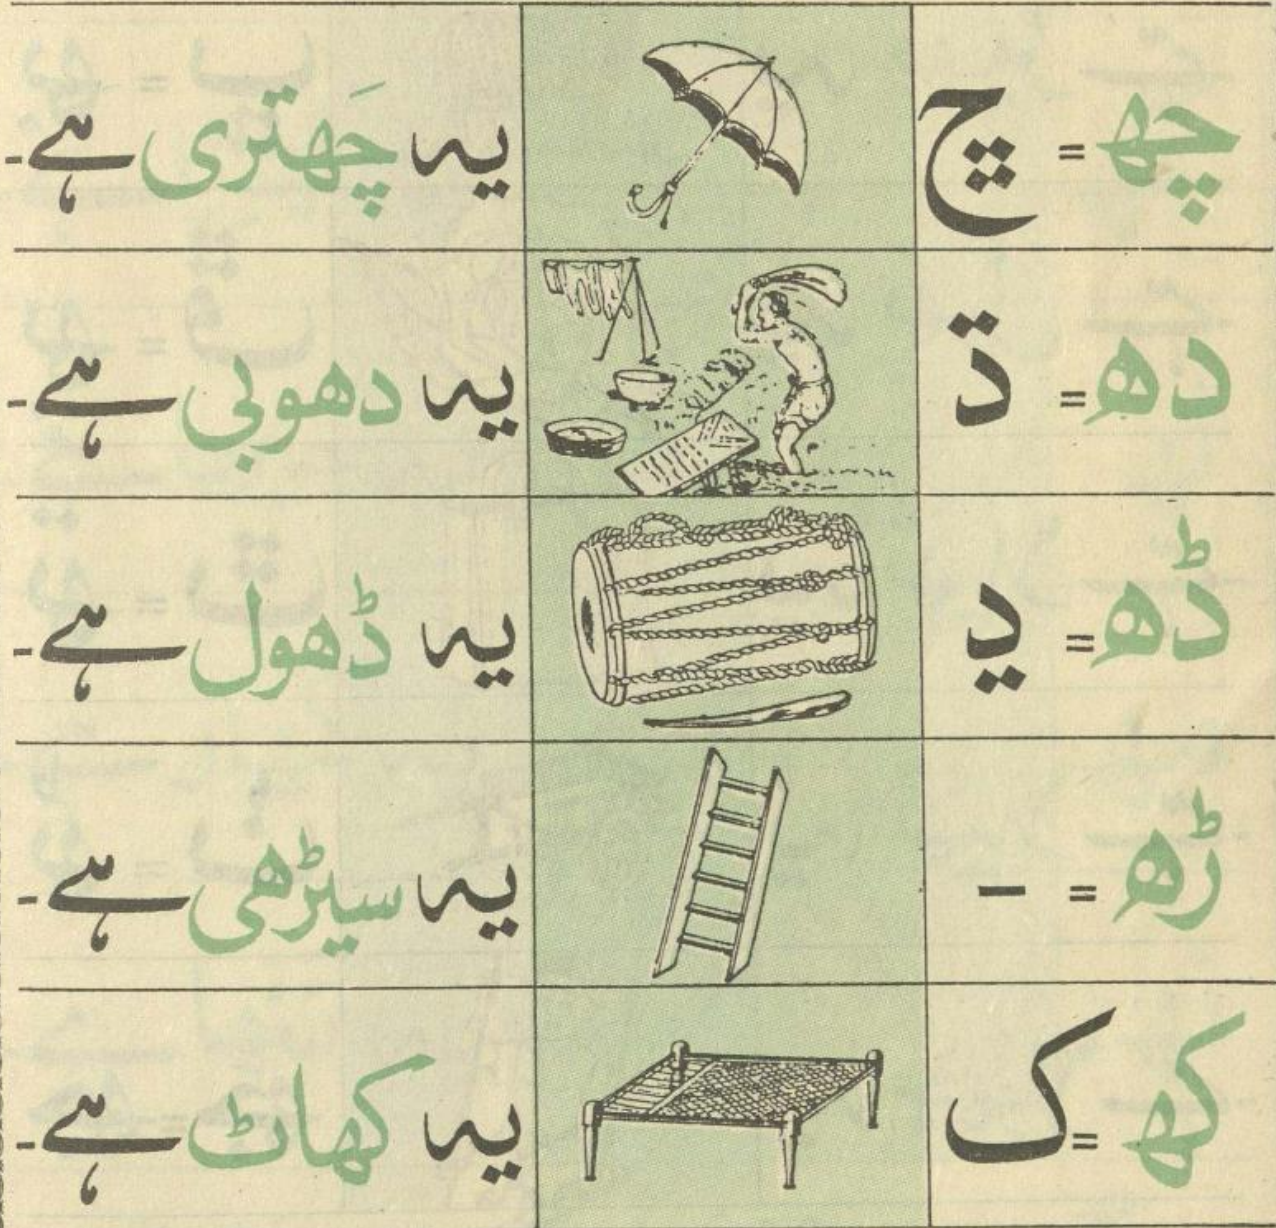 چھ = ڇ یہ چَھتری ہے۔
دھ = ڌ یہ دھوبی ہے۔
ڈھ = ڍ یہ ڈھول ہے۔
ڑھ = - یہ سیڑھی ہے۔
کھ = ک یہ کھاٹ ہے۔